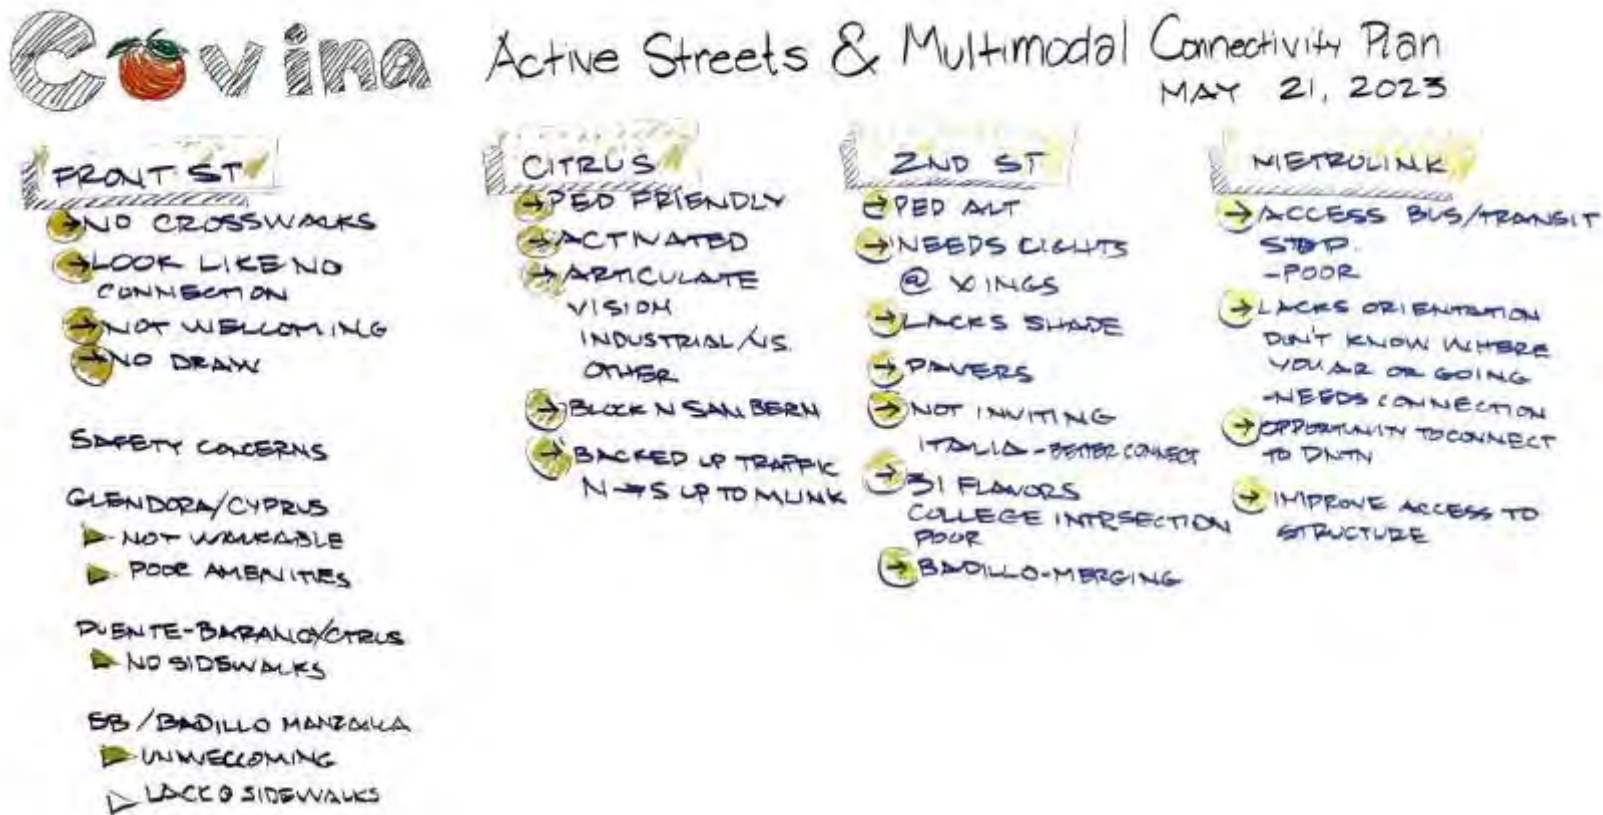 Covina Active Streets & Multimodal Connectivity Plan
MAY 21, 2023
FRONT ST
→ NO CROSSWALKS
→ LOOK LIKE NO
CONNECTION
→ NOT WELCOMING
→ NO DRAW
SAFETY CONCERNS
GLENDORA/CYPRUS
NOT WALKABLE
POOR AMENITIES
PUENTE-BARANCA/CITRUS
NO SIDEWALKS
SB/BADILLO
UNWELCOMING
LACK O SIDEWALKS
CITRUS
→ PED FRIENDLY
→ ACTIVATED
→ ARTICULATE
VISION
INDUSTRIAL/VS.
OTHER
→ BLOCK N SAN BERN
→ BACKED UP TRAFFIC
N→S UP TO MLINK
2ND ST
→ PED ALT
→ NEEDS LIGHTS
@ XINGS
→ LACKS SHADE
→ PAVERS
→ NOT INVITING
ITALIA - BETTER CONNECT
→ 31 FLAVORS
COLLEGE INTRSECTION
POOR
→ BADILLO-MERGING
METROLINK
→ ACCESS BUS/TRANSIT
STOP.
-POOR
→ LACKS ORIENTATION
DON'T KNOW WHERE
YOU AR OR GOING
-NEEDS CONNECTION
→ OPPORTUNITY TO CONNECT
TO DNTN
→ IMPROVE ACCESS TO
STRUCTURE